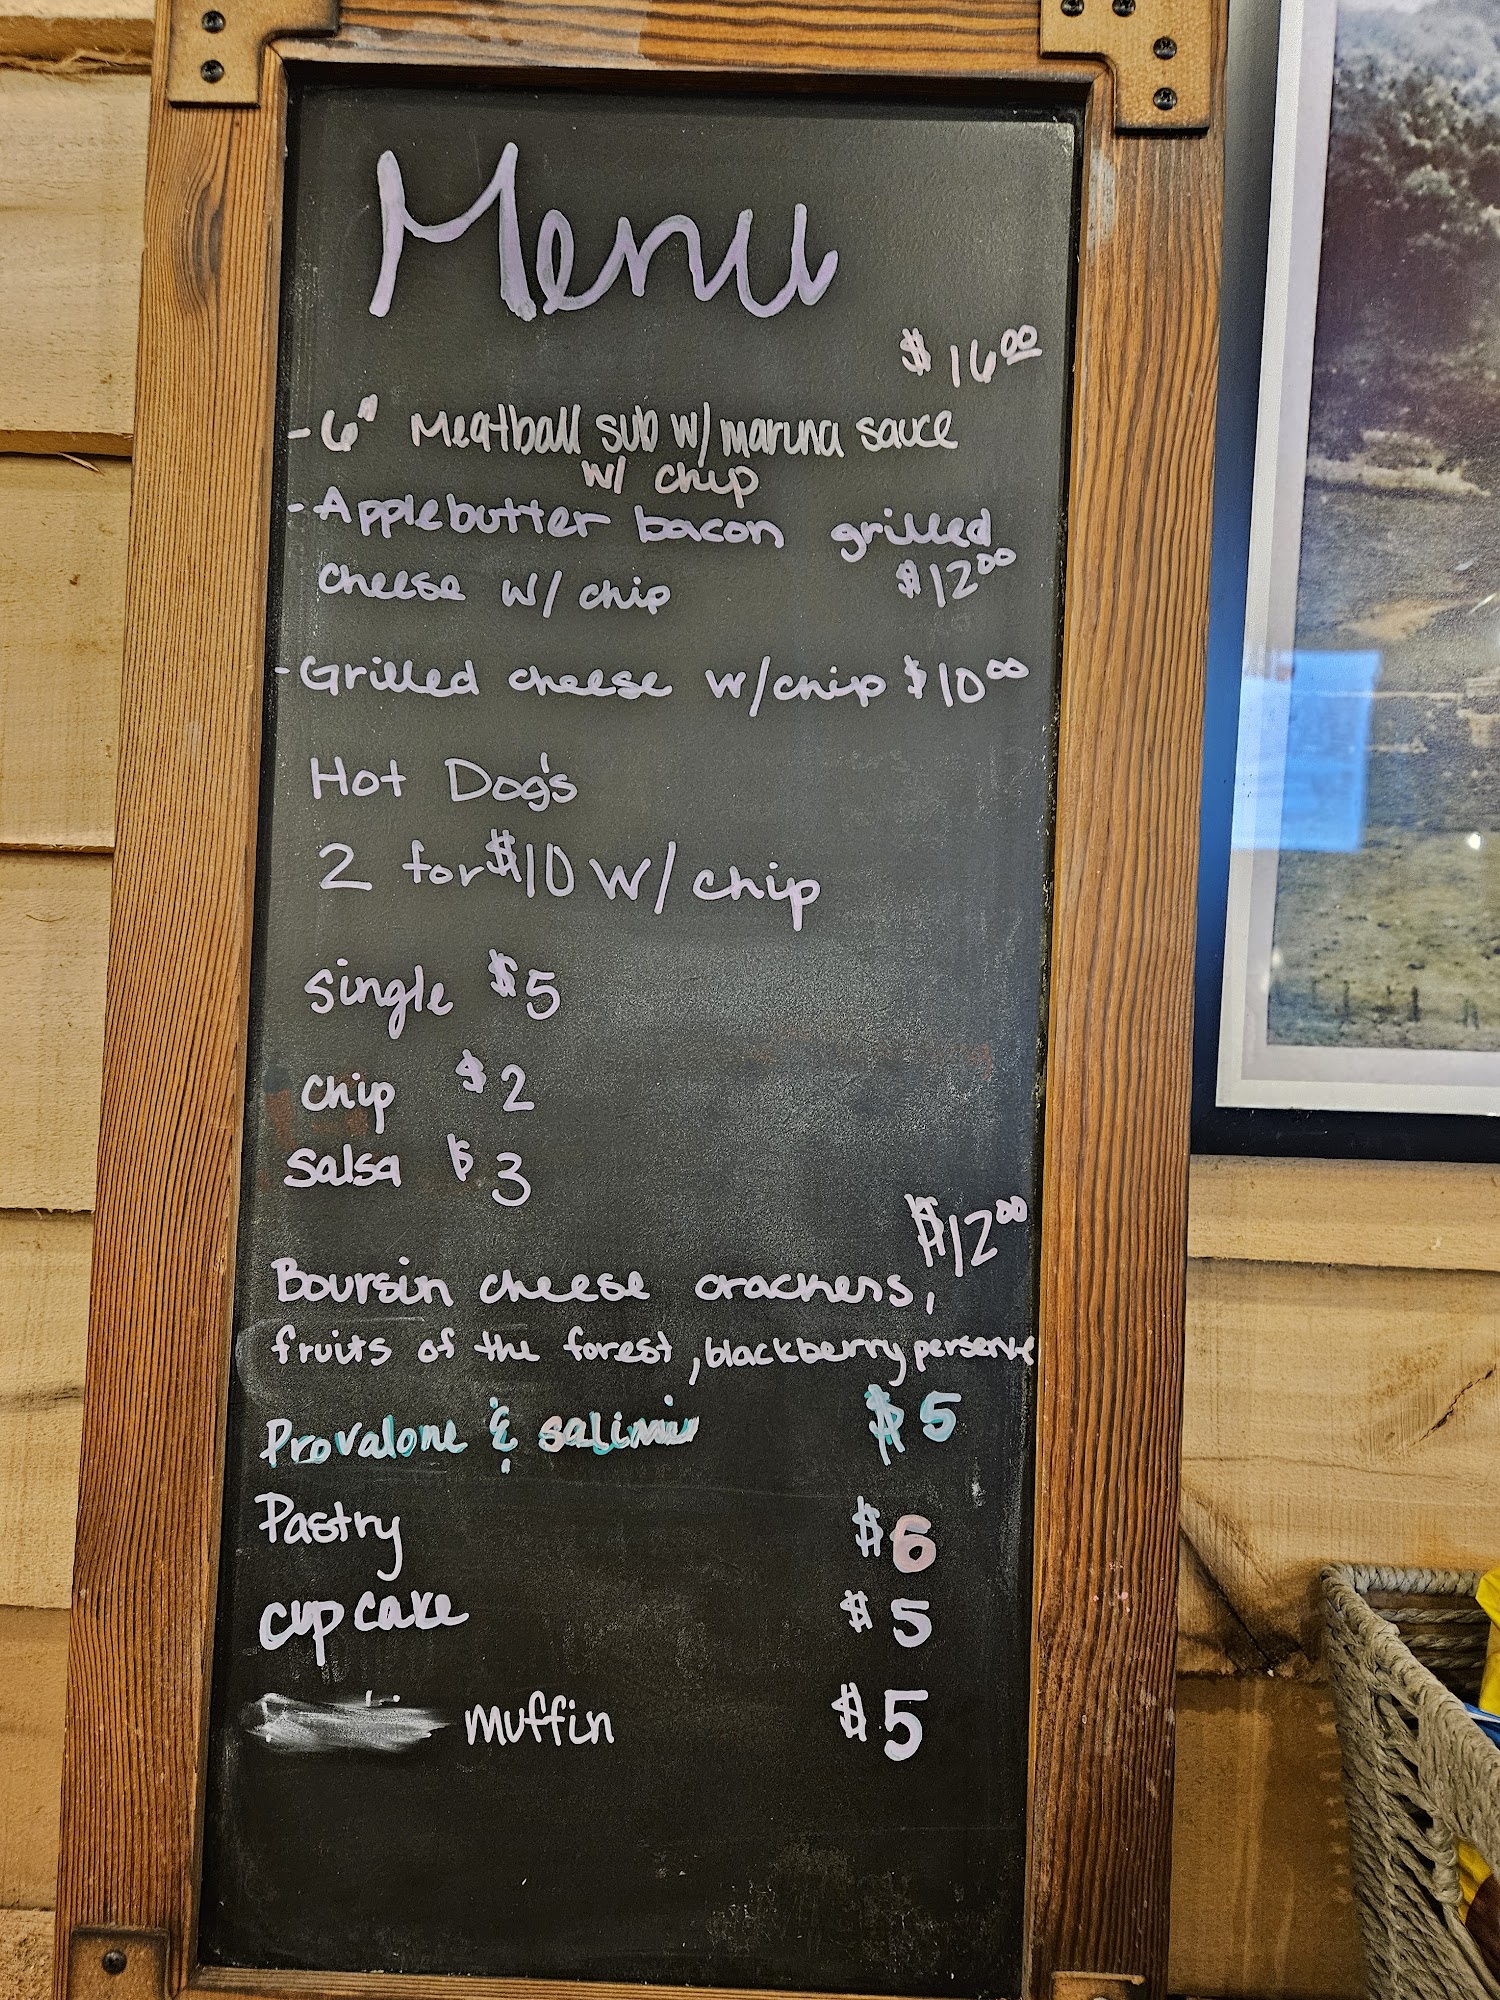 Menu
$16.00
- 6" Meatball sub w/ maruna sauce
w/ chip
- Applebutter bacon grilled
cheese w/ chip $12.00
- Grilled cheese w/chip $10.00
Hot Dog's
2 for $10 w/ chip
single $5
chip $2
salsa $3
$12.00
Boursin cheese crackers,
fruits of the forest, blackberry perserve
Provalone & salimi $5
Pastry $6
cupcake $5
muffin $5